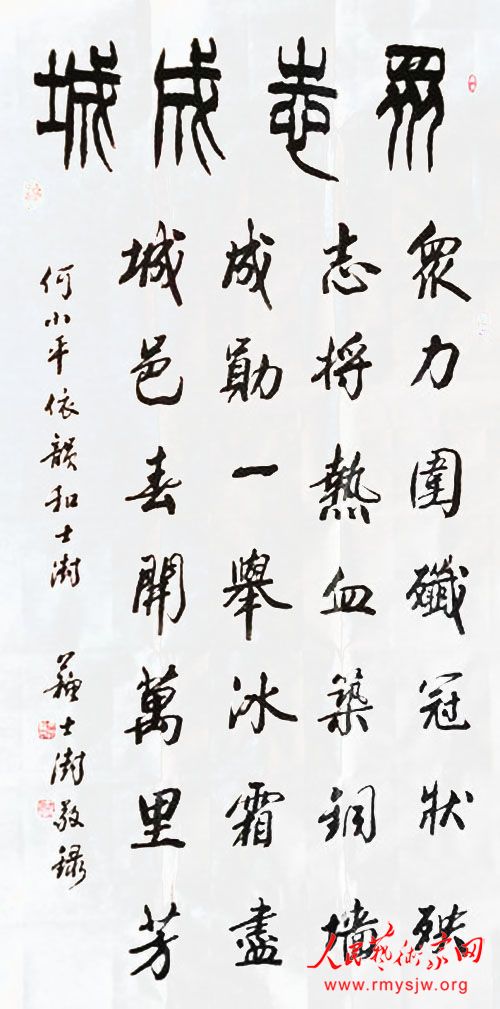 眾志成城
眾力圍殲冠狀殃
志將熱血築銅墻
成勛一舉冰霜盡
城邑春開萬里芳
何小平依韻和士澍 蘇士澍敬錄
人民藝術家网
www.rmysjw.org